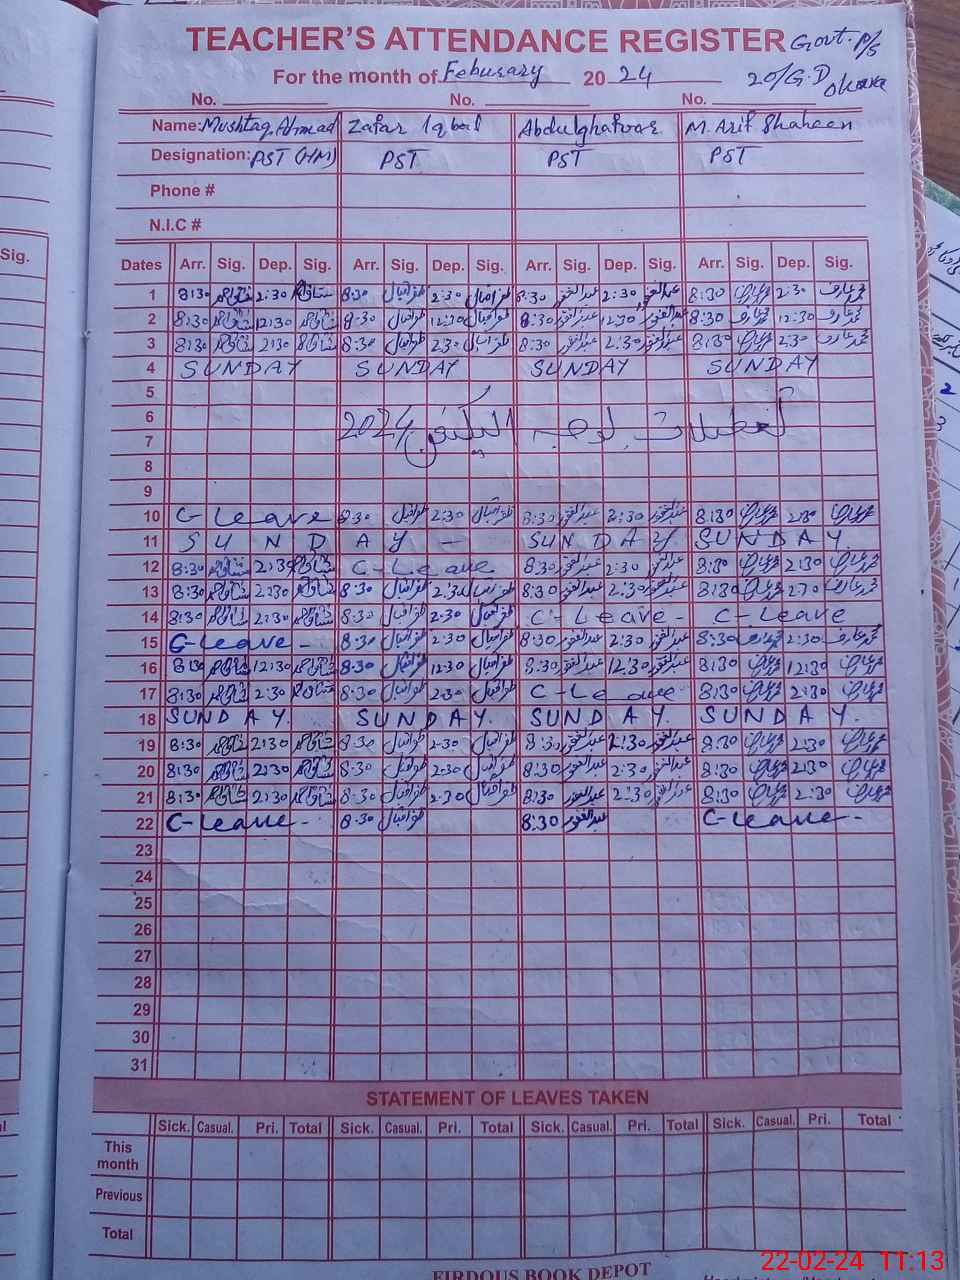 TEACHER'S ATTENDANCE REGISTER Govt. P/S
For the month of Febuary 2024 20/G.D Okara
No. No. No.
Name: Mushtaq Ahmad Zafar Iqbal Abdulghafoor M. Arif Shaheen
Designation: PST (HM) PST PST PST
Phone #
N.I.C #
Dates Arr. Sig. Dep. Sig. Arr. Sig. Dep. Sig. Arr. Sig. Dep. Sig. Arr. Sig. Dep. Sig.
1 8:30 2:30 8:30 ظفراقبال 2:30 ظفراقبال 8:30 عبدالغفور 2:30 عبدالغفور 8:30 2:30
2 8:30 12:30 8:30 ظفراقبال 12:30 ظفراقبال 8:30 عبدالغفور 12:30 عبدالغفور 8:30 12:30
3 8:30 2:30 8:30 ظفراقبال 2:30 ظفراقبال 8:30 عبدالغفور 2:30 عبدالغفور 8:30 2:30
4 SUNDAY SUNDAY SUNDAY SUNDAY
5
6 تعطیلات بوجہ الیکشن 2024
7
8
9
10 C-Leave 8:30 ظفراقبال 2:30 ظفراقبال 8:30 عبدالغفور 2:30 عبدالغفور 8:30 2:30
11 SUNDAY - SUNDAY SUNDAY
12 8:30 2:30 C-Leave 8:30 عبدالغفور 2:30 عبدالغفور 8:30 2:30
13 8:30 2:30 8:30 ظفراقبال 2:30 ظفراقبال 8:30 عبدالغفور 2:30 عبدالغفور 8:30 2:30
14 8:30 2:30 8:30 ظفراقبال 2:30 ظفراقبال C-Leave - C-Leave
15 C-Leave - 8:30 ظفراقبال 2:30 ظفراقبال 8:30 عبدالغفور 2:30 عبدالغفور 8:30 2:30
16 8:30 12:30 8:30 ظفراقبال 12:30 ظفراقبال 8:30 عبدالغفور 12:30 عبدالغفور 8:30 12:30
17 8:30 2:30 8:30 ظفراقبال 2:30 ظفراقبال C-Leave 8:30 2:30
18 SUNDAY. SUNDAY. SUNDAY. SUNDAY.
19 8:30 2:30 8:30 ظفراقبال 2:30 ظفراقبال 8:30 عبدالغفور 2:30 عبدالغفور 8:30 2:30
20 8:30 2:30 8:30 ظفراقبال 2:30 ظفراقبال 8:30 عبدالغفور 2:30 عبدالغفور 8:30 2:30
21 8:30 2:30 8:30 ظفراقبال 2:30 ظفراقبال 8:30 عبدالغفور 2:30 عبدالغفور 8:30 2:30
22 C-Leave - 8:30 ظفراقبال 8:30 عبدالغفور C-Leave -
23
24
25
26
27
28
29
30
31
STATEMENT OF LEAVES TAKEN
Sick. Casual. Pri. Total Sick. Casual. Pri. Total Sick. Casual. Pri. Total Sick. Casual. Pri. Total
This month
Previous
Total
FIRDOUS BOOK DEPOT
22-02-24 11:13
Sig.